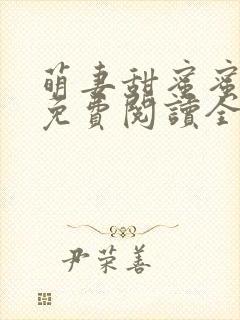 萌妻甜蜜蜜
免費閱讀全
尹荣善